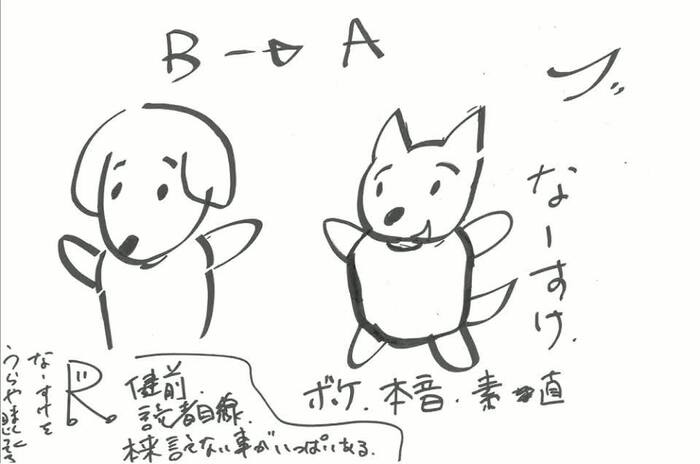 B → A
ブ
なーすけ.
ボケ. 本音. 素直
健前.
読者目線.
本来言えない事がいっぱいある.
R.
なーすけを
うらやましく